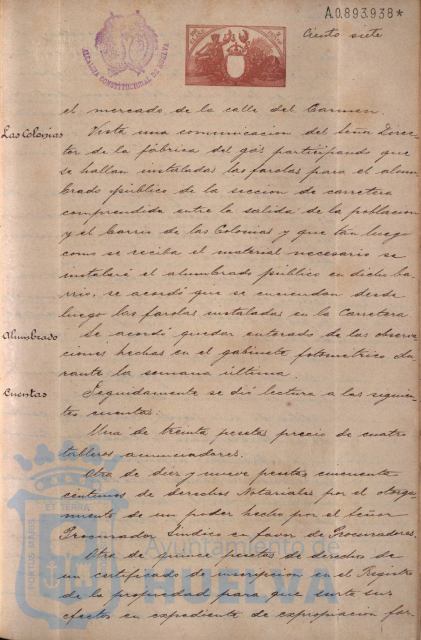 A.0.893.938*
Ciento siete
ALCALDIA CONSTITUCIONAL DE HUELVA
el mercado de la calle del Carmen.
Las Colonias
Vista una comunicacion del Señor Direc-
tor de la fábrica del gas participando que
se hallan instaladas las farolas para el alum-
brado público de la seccion de carretera
comprendida entre la salida de la poblacion
y el Barrio de las Colonias y que tan luego
como se reciba el material necesario se
instalará el alumbrado público en dicho ba-
rrio, se acordó que se enciendan desde
luego las farolas instaladas en la Carretera
Alumbrado
Se acordó quedar enterado de las observa-
ciones hechas en el gabinete fotometrico du-
rante la semana última.
Cuentas
Seguidamente se dió lectura a las siguien-
tes cuentas:
Una de treinta pesetas precio de cuatro
tableros anunciadores.
Otra de diez y nueve pesetas cincuenta
centimos de derechos Notariales por el otorga-
miento de un poder hecho por el Señor
Procurador Síndico en favor de Procuradores.
Otra de quince pesetas de derechos de
un certificado de inscripcion en el Registro
de la propiedad para que surta sus
efectos en expediente de expropiacion for-
Ayuntamiento de
HUELVA
PORTUS MARIS
ET TERRÆ